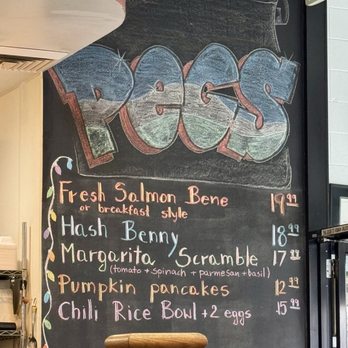 PeGS
Fresh Salmon Bene 19.99
or breakfast style
Hash Benny 18.99
Margarita Scramble 17.99
(tomato + spinach + parmesan + basil)
Pumpkin pancakes 12.99
Chili Rice Bowl + 2 eggs 15.99